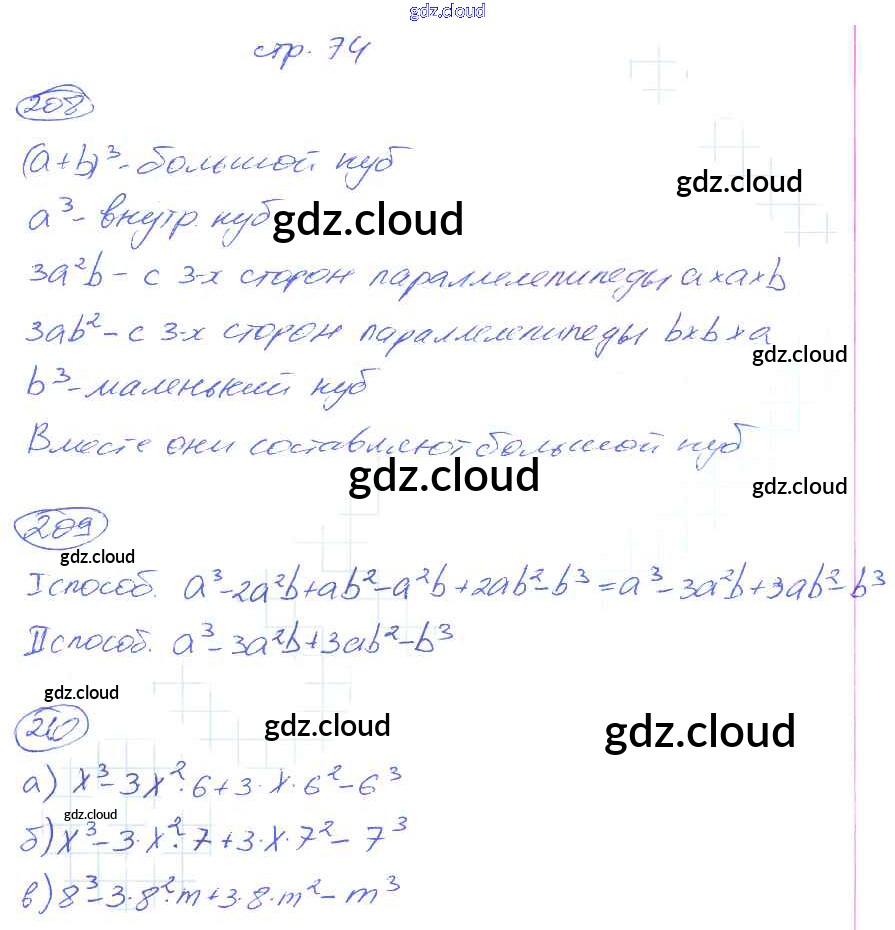 gdz.cloud
стр. 74
208
(a+b)³ - большой куб
gdz.cloud
a³ - внутр. куб
gdz.cloud
3a²b - с 3-х сторон параллелепипеды a×a×b
3ab² - с 3-х сторон параллелепипеды b×b×a
gdz.cloud
b³ - маленький куб
Вместе они составляют большой куб
gdz.cloud
gdz.cloud
209
gdz.cloud
I способ. a³-2a²b+ab²-a²b+2ab²-b³=a³-3a²b+3ab²-b³
II способ. a³-3a²b+3ab²-b³
gdz.cloud
210
gdz.cloud
gdz.cloud
а) x³-3x²·6+3·x·6²-6³
gdz.cloud
б) x³-3·x²·7+3·x·7²-7³
в) 8³-3·8²·m+3·8·m²-m³